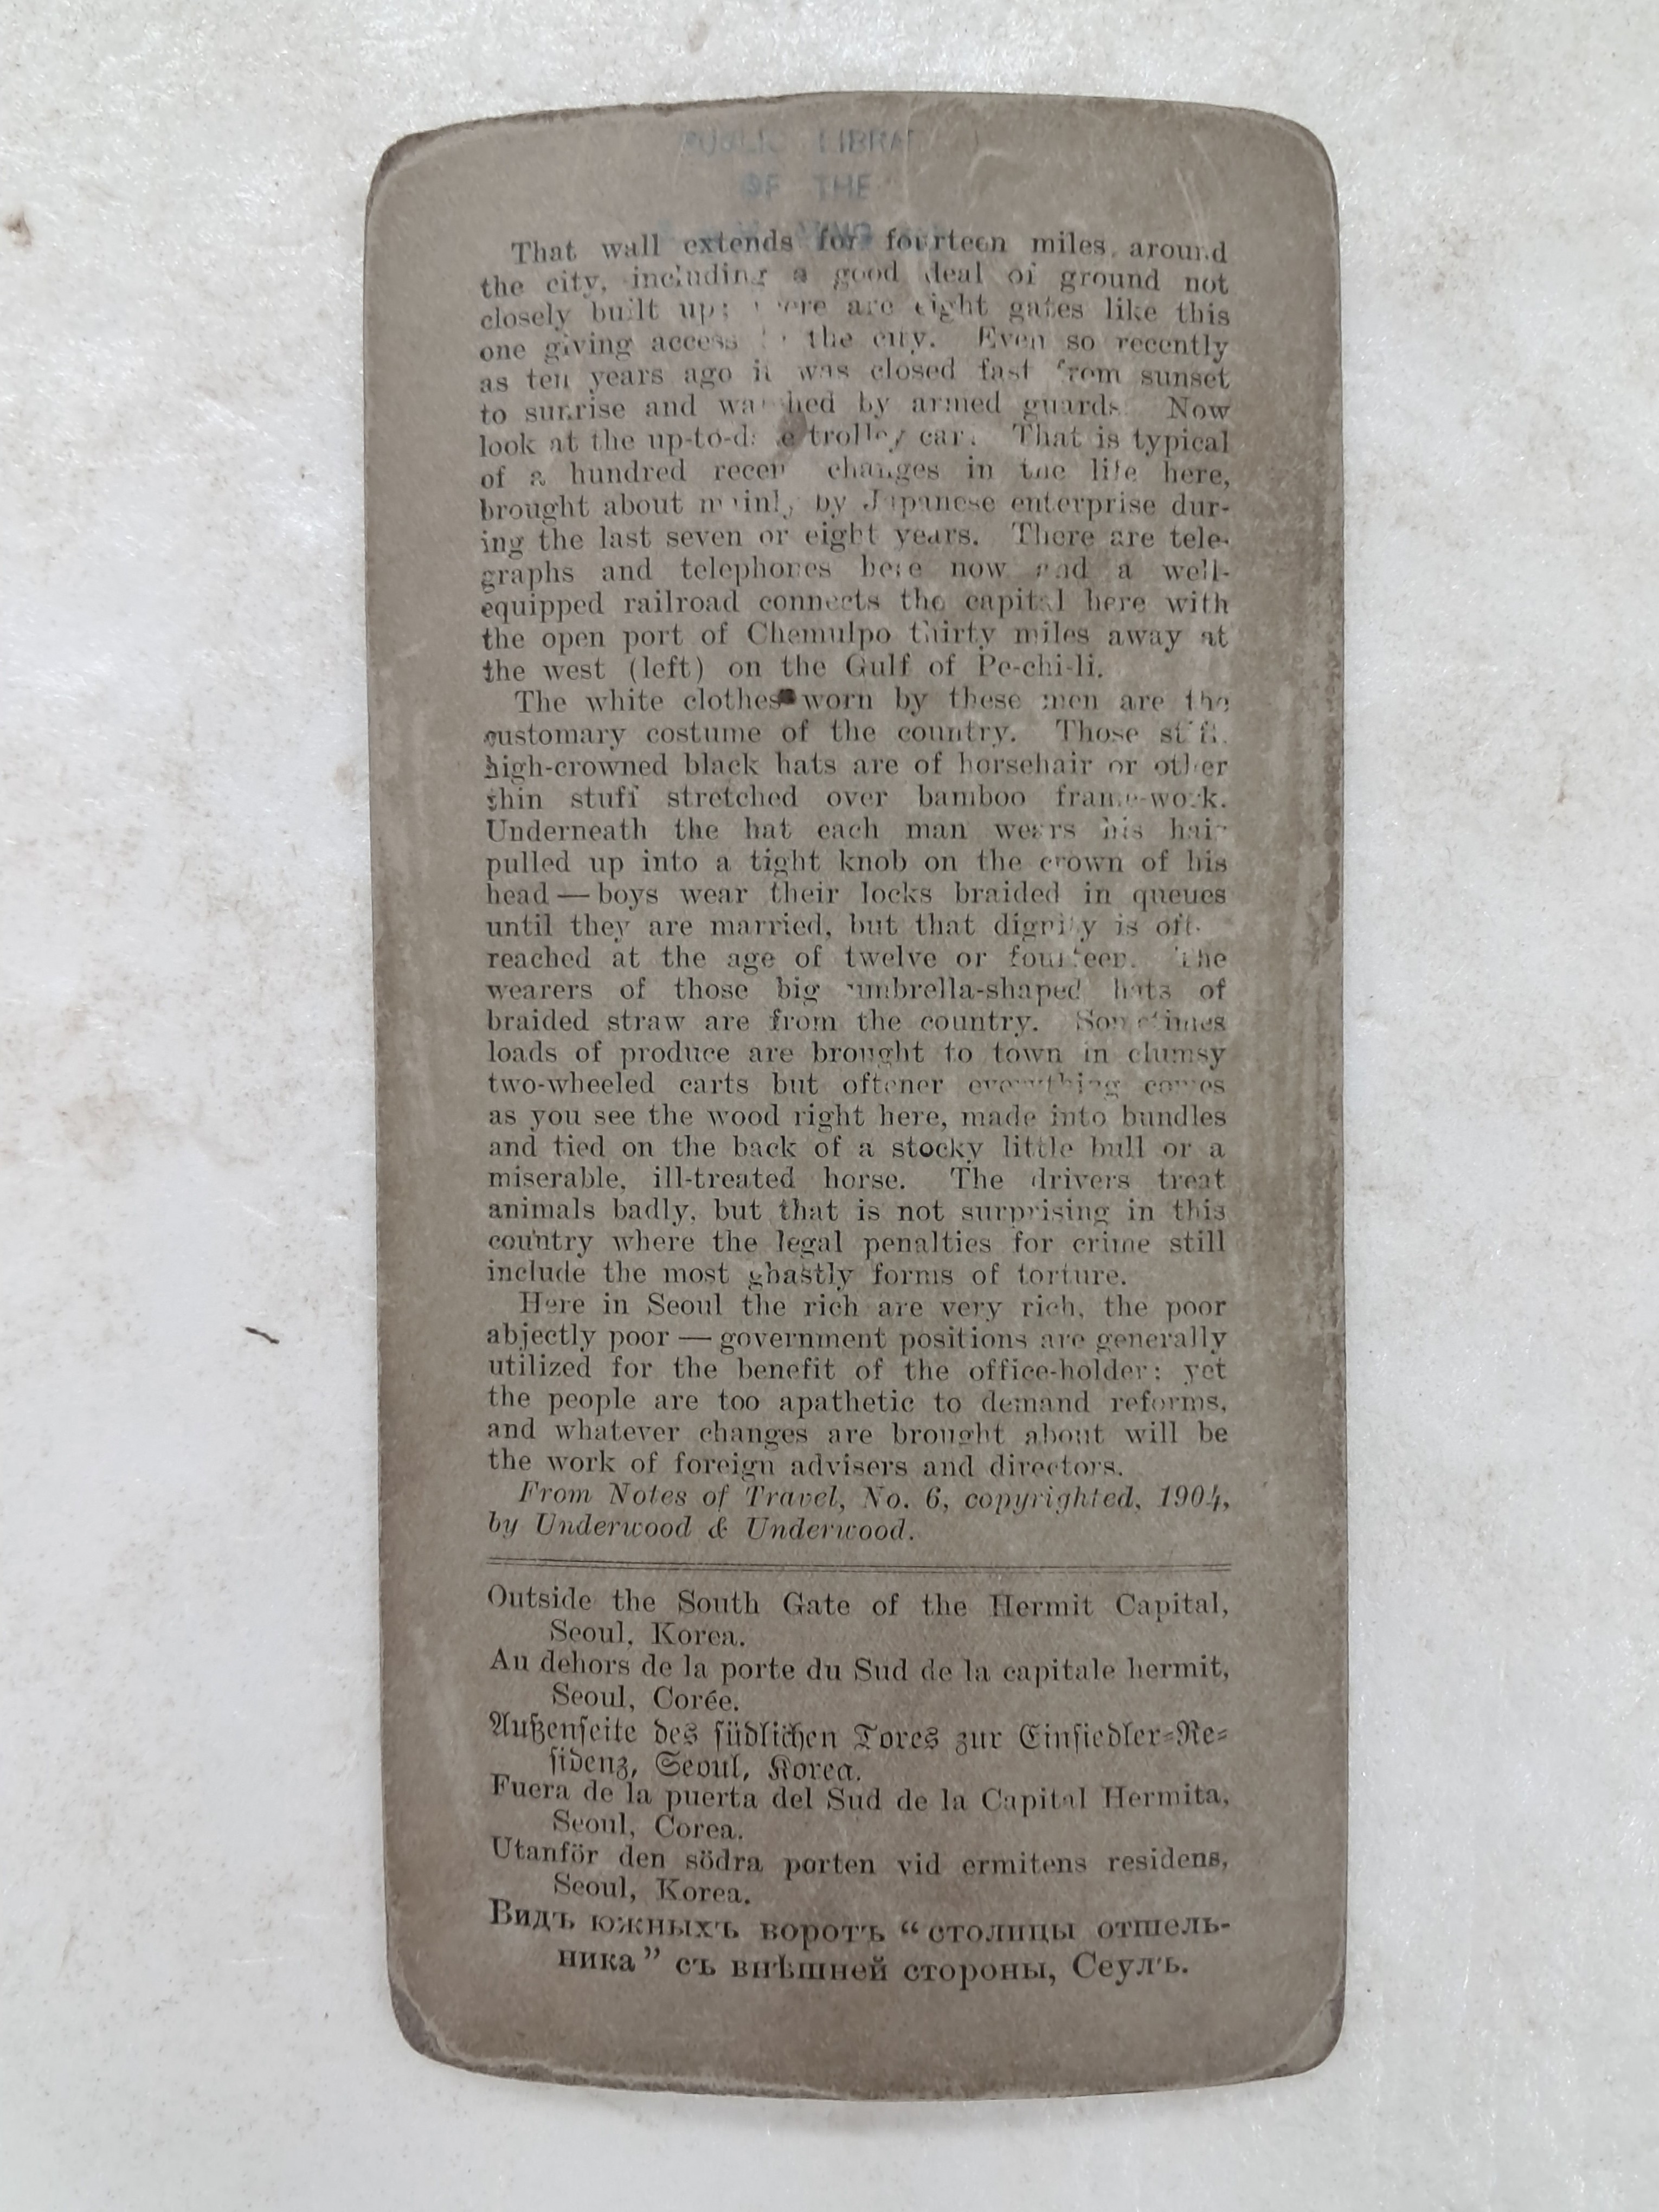 PUBLIC LIBRA
OF THE
That wall extends for fourteen miles around
the city, including a good deal of ground not
closely built up; there are eight gates like this
one giving access to the city. Even so recently
as ten years ago it was closed fast from sunset
to sunrise and watched by armed guards. Now
look at the up-to-date trolley car. That is typical
of a hundred recent changes in the life here,
brought about mainly by Japanese enterprise dur-
ing the last seven or eight years. There are tele-
graphs and telephones here now and a well-
equipped railroad connects the capital here with
the open port of Chemulpo thirty miles away at
the west (left) on the Gulf of Pe-chi-li.
The white clothes worn by these men are the
customary costume of the country. Those stiff,
high-crowned black hats are of horsehair or other
thin stuff stretched over bamboo frame-work.
Underneath the hat each man wears his hair
pulled up into a tight knob on the crown of his
head — boys wear their locks braided in queues
until they are married, but that dignity is oft
reached at the age of twelve or fourteen. The
wearers of those big umbrella-shaped hats of
braided straw are from the country. Sometimes
loads of produce are brought to town in clumsy
two-wheeled carts but oftener everything comes
as you see the wood right here, made into bundles
and tied on the back of a stocky little bull or a
miserable, ill-treated horse. The drivers treat
animals badly, but that is not surprising in this
country where the legal penalties for crime still
include the most ghastly forms of torture.
Here in Seoul the rich are very rich, the poor
abjectly poor — government positions are generally
utilized for the benefit of the office-holder; yet
the people are too apathetic to demand reforms,
and whatever changes are brought about will be
the work of foreign advisers and directors.
From Notes of Travel, No. 6, copyrighted, 1904,
by Underwood & Underwood.
Outside the South Gate of the Hermit Capital,
Seoul, Korea.
Au dehors de la porte du Sud de la capitale hermit,
Seoul, Corée.
Außenseite des südlichen Tores zur Einsiedler-Re-
sidenz, Seoul, Korea.
Fuera de la puerta del Sud de la Capital Hermita,
Seoul, Corea.
Utanför den södra porten vid ermitens residens,
Seoul, Korea.
Видъ южныхъ воротъ “столицы отшель-
ника” съ внѣшней стороны, Сеулъ.